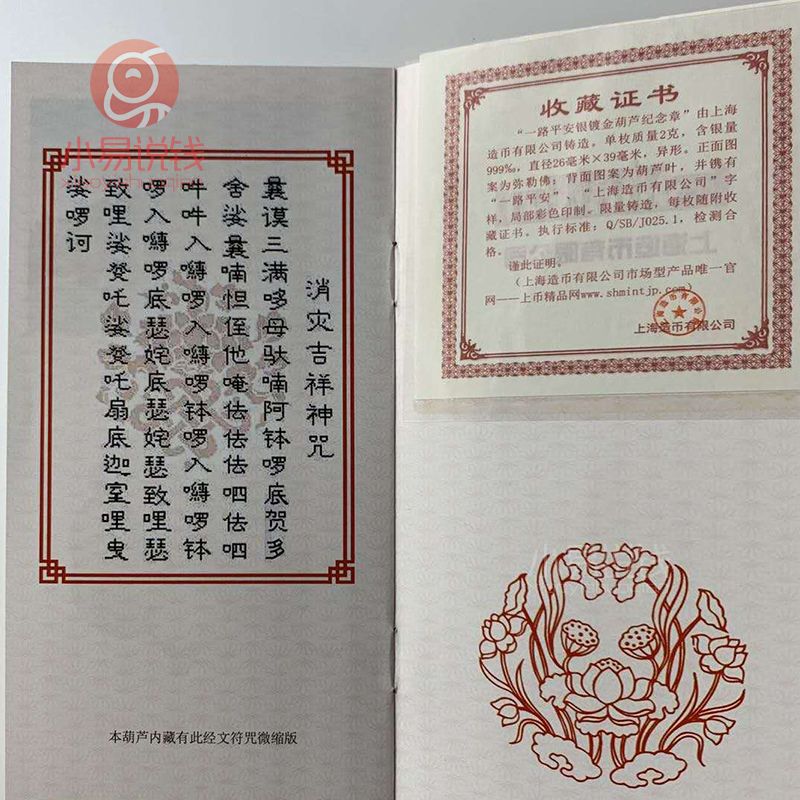 小易说钱
消灾吉祥神咒
曩谟三满哆母驮喃阿钵啰底贺多
舍娑曩喃怛侄他唵佉佉佉呬佉呬
吽吽入嚩啰入嚩啰钵啰入嚩啰钵
啰入嚩啰底瑟姹底瑟姹瑟致哩瑟
致哩娑癹吒娑癹吒扇底迦室哩曳
娑啰诃
本葫芦内藏有此经文符咒微缩版
收藏证书
“一路平安银镀金葫芦纪念章”由上海
造币有限公司铸造。单枚质量2克，含银量
999‰，直径26毫米×39毫米，异形。正面图
案为弥勒佛；背面图案为葫芦叶，并镌有
“一路平安”、“上海造币有限公司”字
样，局部彩色印制。限量铸造，每枚随附收
藏证书。执行标准：Q/SB/J025.1，检测合
格。
谨此证明。
（上海造币有限公司市场型产品唯一官
网——上币精品网www.shmintjp.com）
上海造币有限公司